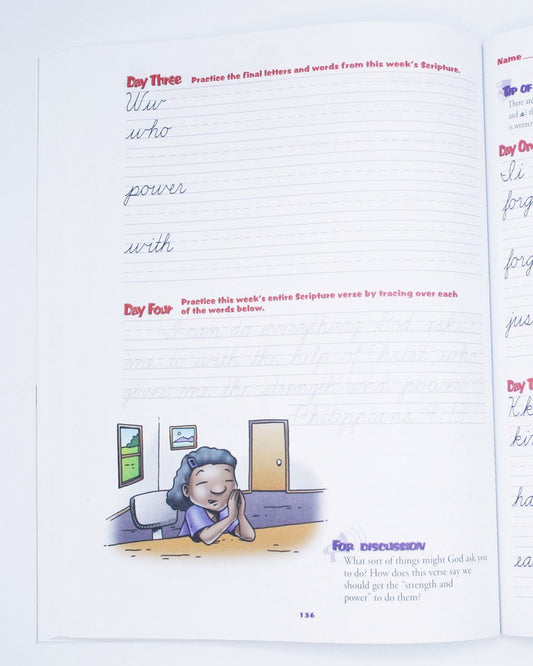 Day Three Practice the final letters and words from this week's Scripture.
Ww
who
power
with
Day Four Practice this week's entire Scripture verse by tracing over each
of the words below.
I can do everything God asks
me to with the help of Christ who
gives me the strength and power.
Philippians 4:13
For discussion
What sort of things might God ask you
to do? How does this verse say we
should get the "strength and
power" to do them?
136
Name
Tip of
There are
and
is written
Day One
Ii
forg
forg
jus
Day T
Kk
kin
ha
ea